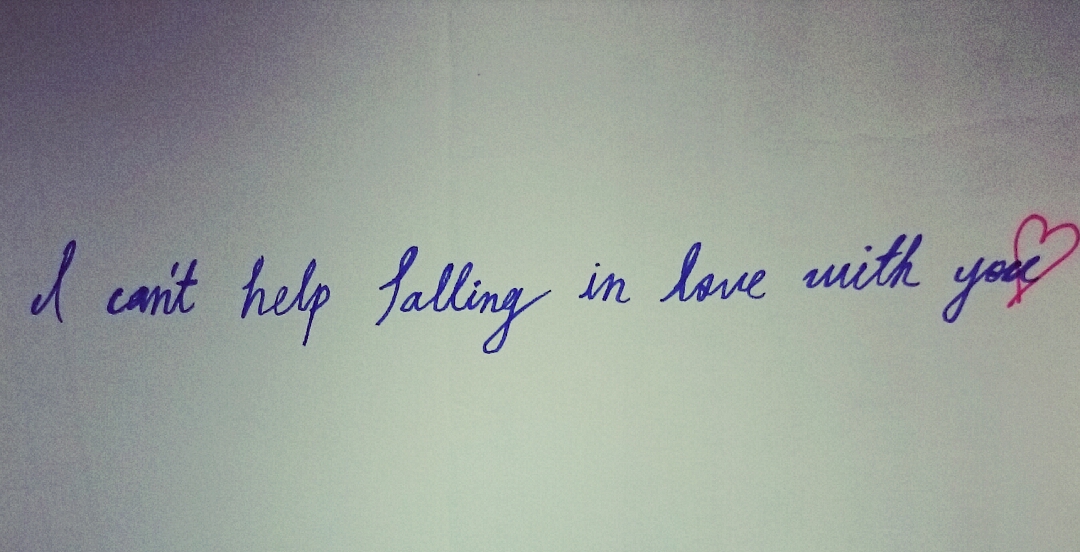 I can't help falling in love with you